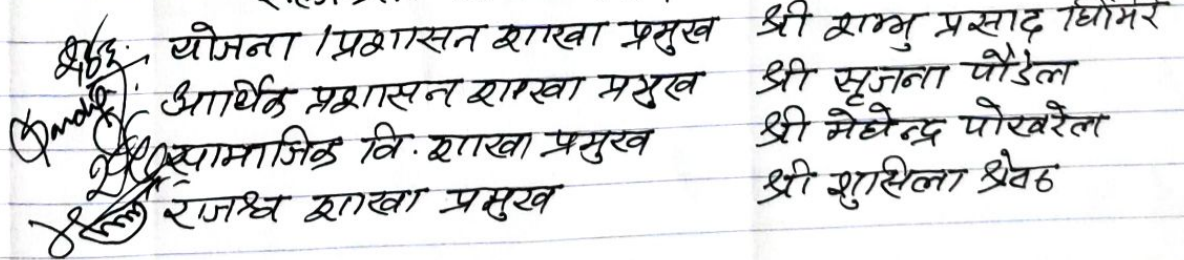 योजना / प्रशासन शाखा प्रमुख श्री शम्भु प्रसाद घिमिरे
आर्थिक प्रशासन शाखा प्रमुख श्री सृजना पौडेल
सामाजिक वि. शाखा प्रमुख श्री मेघेन्द्र पोखरेल
राजश्व शाखा प्रमुख श्री शुसिला श्रेष्ठ